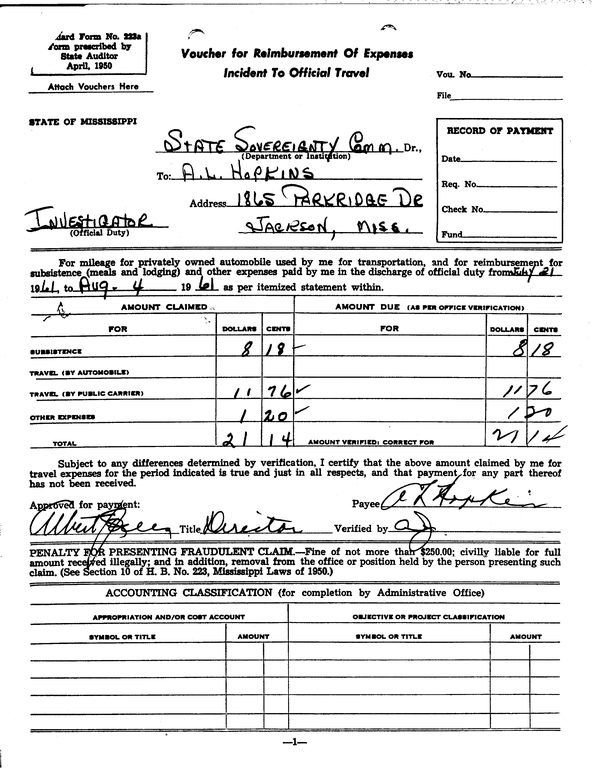 dard Form No. 223a
Form prescribed by
State Auditor
April, 1950
Attach Vouchers Here
Voucher for Reimbursement Of Expenses
Incident To Official Travel
Vou. No.
File
STATE OF MISSISSIPPI
STATE SOVEREIGNTY COMM. Dr.,
(Department or Institution)
To: A.L. HOPKINS
Address 1865 PARKRIDGE DR
JACKSON, MISS.
INVESTIGATOR
(Official Duty)
RECORD OF PAYMENT
Date
Req. No.
Check No.
Fund
For mileage for privately owned automobile used by me for transportation, and for reimbursement for
subsistence (meals and lodging) and other expenses paid by me in the discharge of official duty from July 21
1961, to Aug. 4 1961 as per itemized statement within.
AMOUNT CLAIMED AMOUNT DUE (AS PER OFFICE VERIFICATION)
FOR DOLLARS CENTS FOR DOLLARS CENTS
SUBSISTENCE 8 18 8 18
TRAVEL (BY AUTOMOBILE)
TRAVEL (BY PUBLIC CARRIER) 11 76 11 76
OTHER EXPENSES 1 20 1 20
TOTAL 21 14 AMOUNT VERIFIED; CORRECT FOR 21 14
Subject to any differences determined by verification, I certify that the above amount claimed by me for
travel expenses for the period indicated is true and just in all respects, and that payment for any part thereof
has not been received.
Approved for payment: Payee A L Hopkins
Albert Title Director Verified by
PENALTY FOR PRESENTING FRAUDULENT CLAIM.—Fine of not more than $250.00; civilly liable for full
amount received illegally; and in addition, removal from the office or position held by the person presenting such
claim. (See Section 10 of H. B. No. 223, Mississippi Laws of 1950.)
ACCOUNTING CLASSIFICATION (for completion by Administrative Office)
APPROPRIATION AND/OR COST ACCOUNT OBJECTIVE OR PROJECT CLASSIFICATION
SYMBOL OR TITLE AMOUNT SYMBOL OR TITLE AMOUNT
—1—